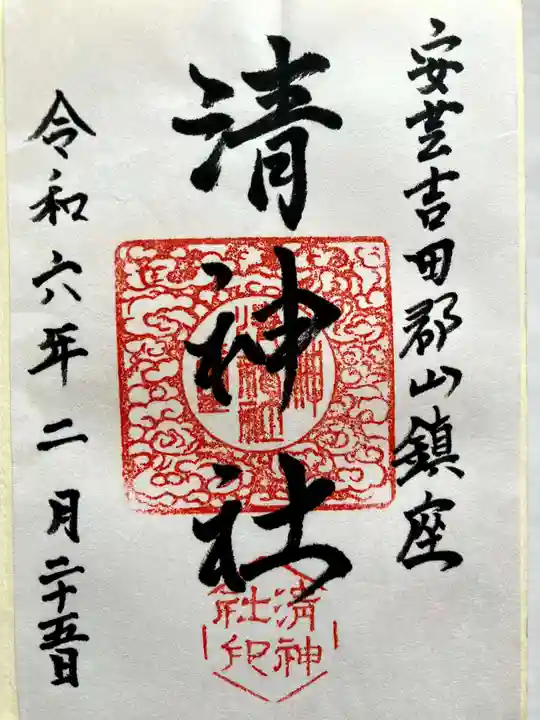 安芸吉田郡山鎮座
清神社
清神
社印
令和六年二月二十五日